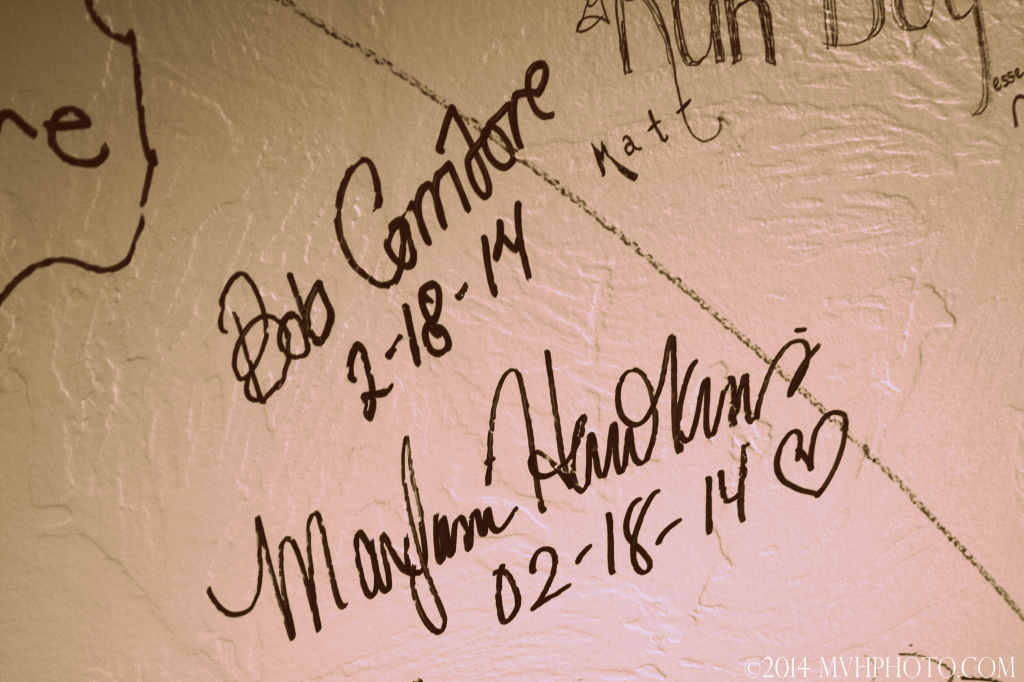 Run Boy
Jesse
Matt
ne
Bob Corritore
2-18-14
MaryJann Hawkins
02-18-14
©2014 MVHPHOTO.COM